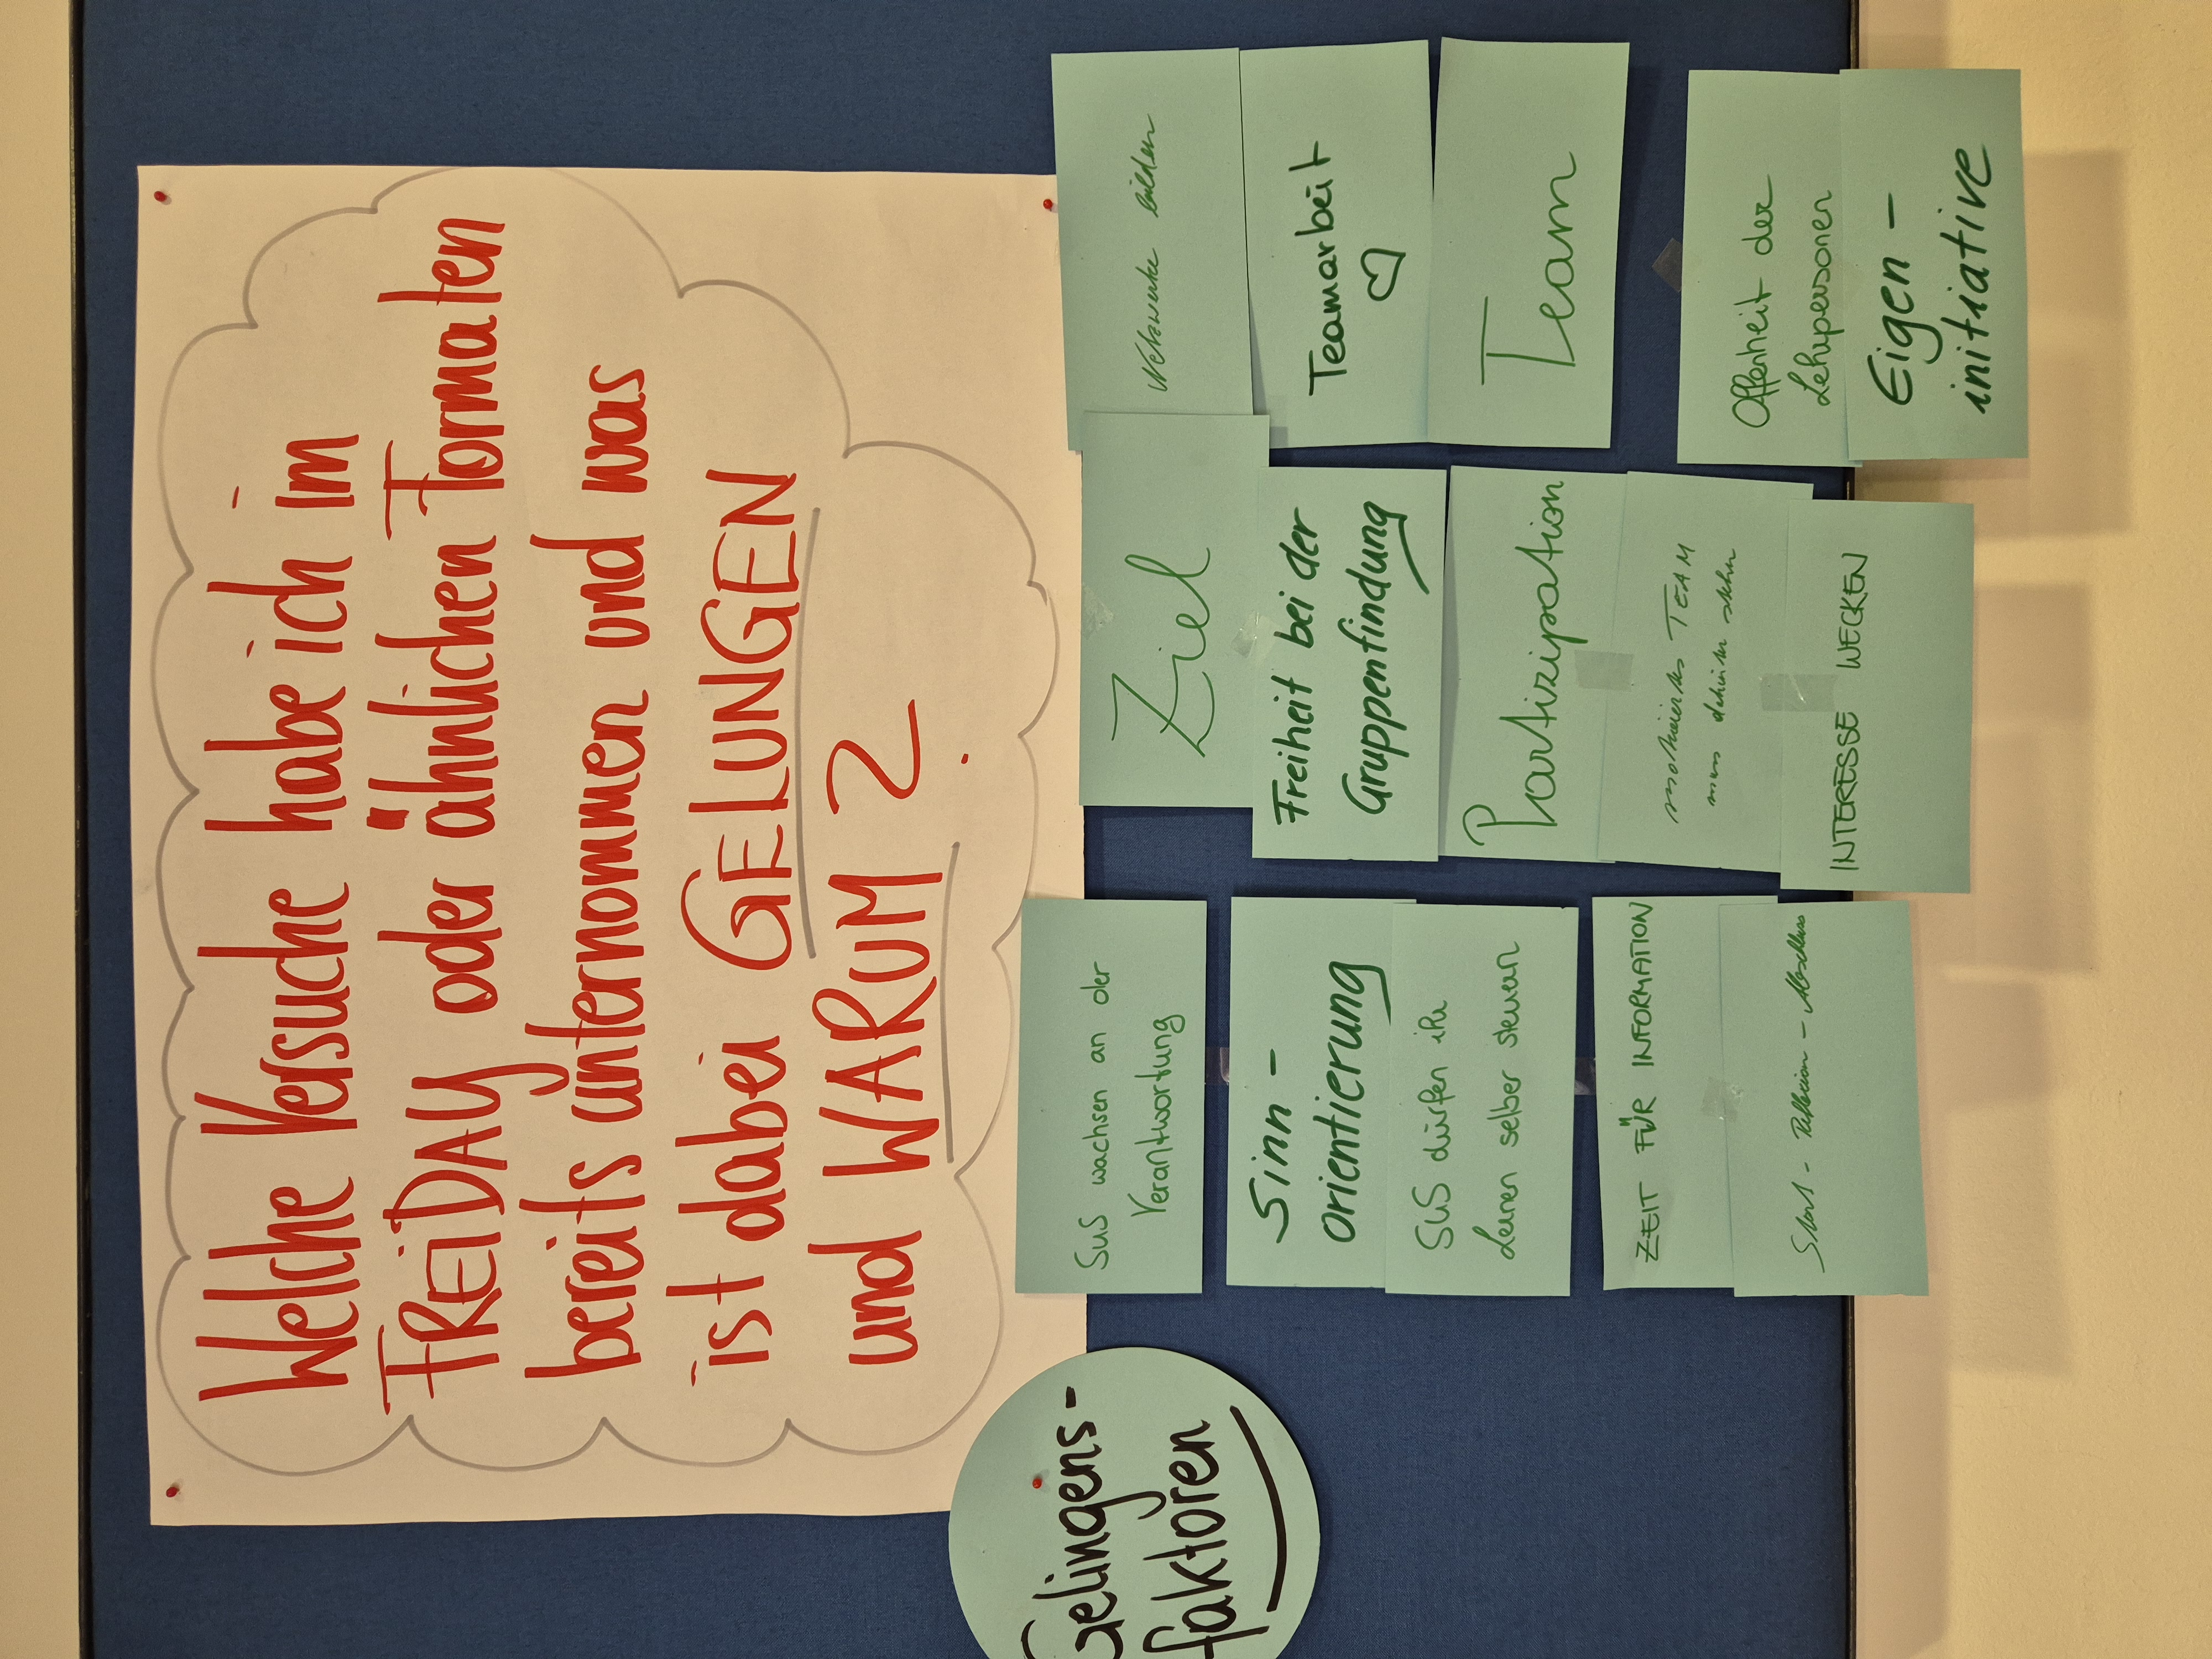 Welche Versuche habe ich im
FREiDAY oder ähnlichen Formaten
bereits unternommen und was
ist dabei GELUNGEN
und WARUM ?
Gelingens-
faktoren
SuS wachsen an der
Verantwortung
Sinn-
orientierung
SuS dürfen ihr
Lernen selber steuern
ZEIT FÜR INFORMATION
Start - Reflexion - Abschluss
Ziel
Freiheit bei der
Gruppenfindung
Partizipation
motiviertes TEAM
muss dahinter stehen
INTERESSE WECKEN
Netzwerke bilden
Teamarbeit
♡
Team
Offenheit der
Lehrpersonen
Eigen-
initiative